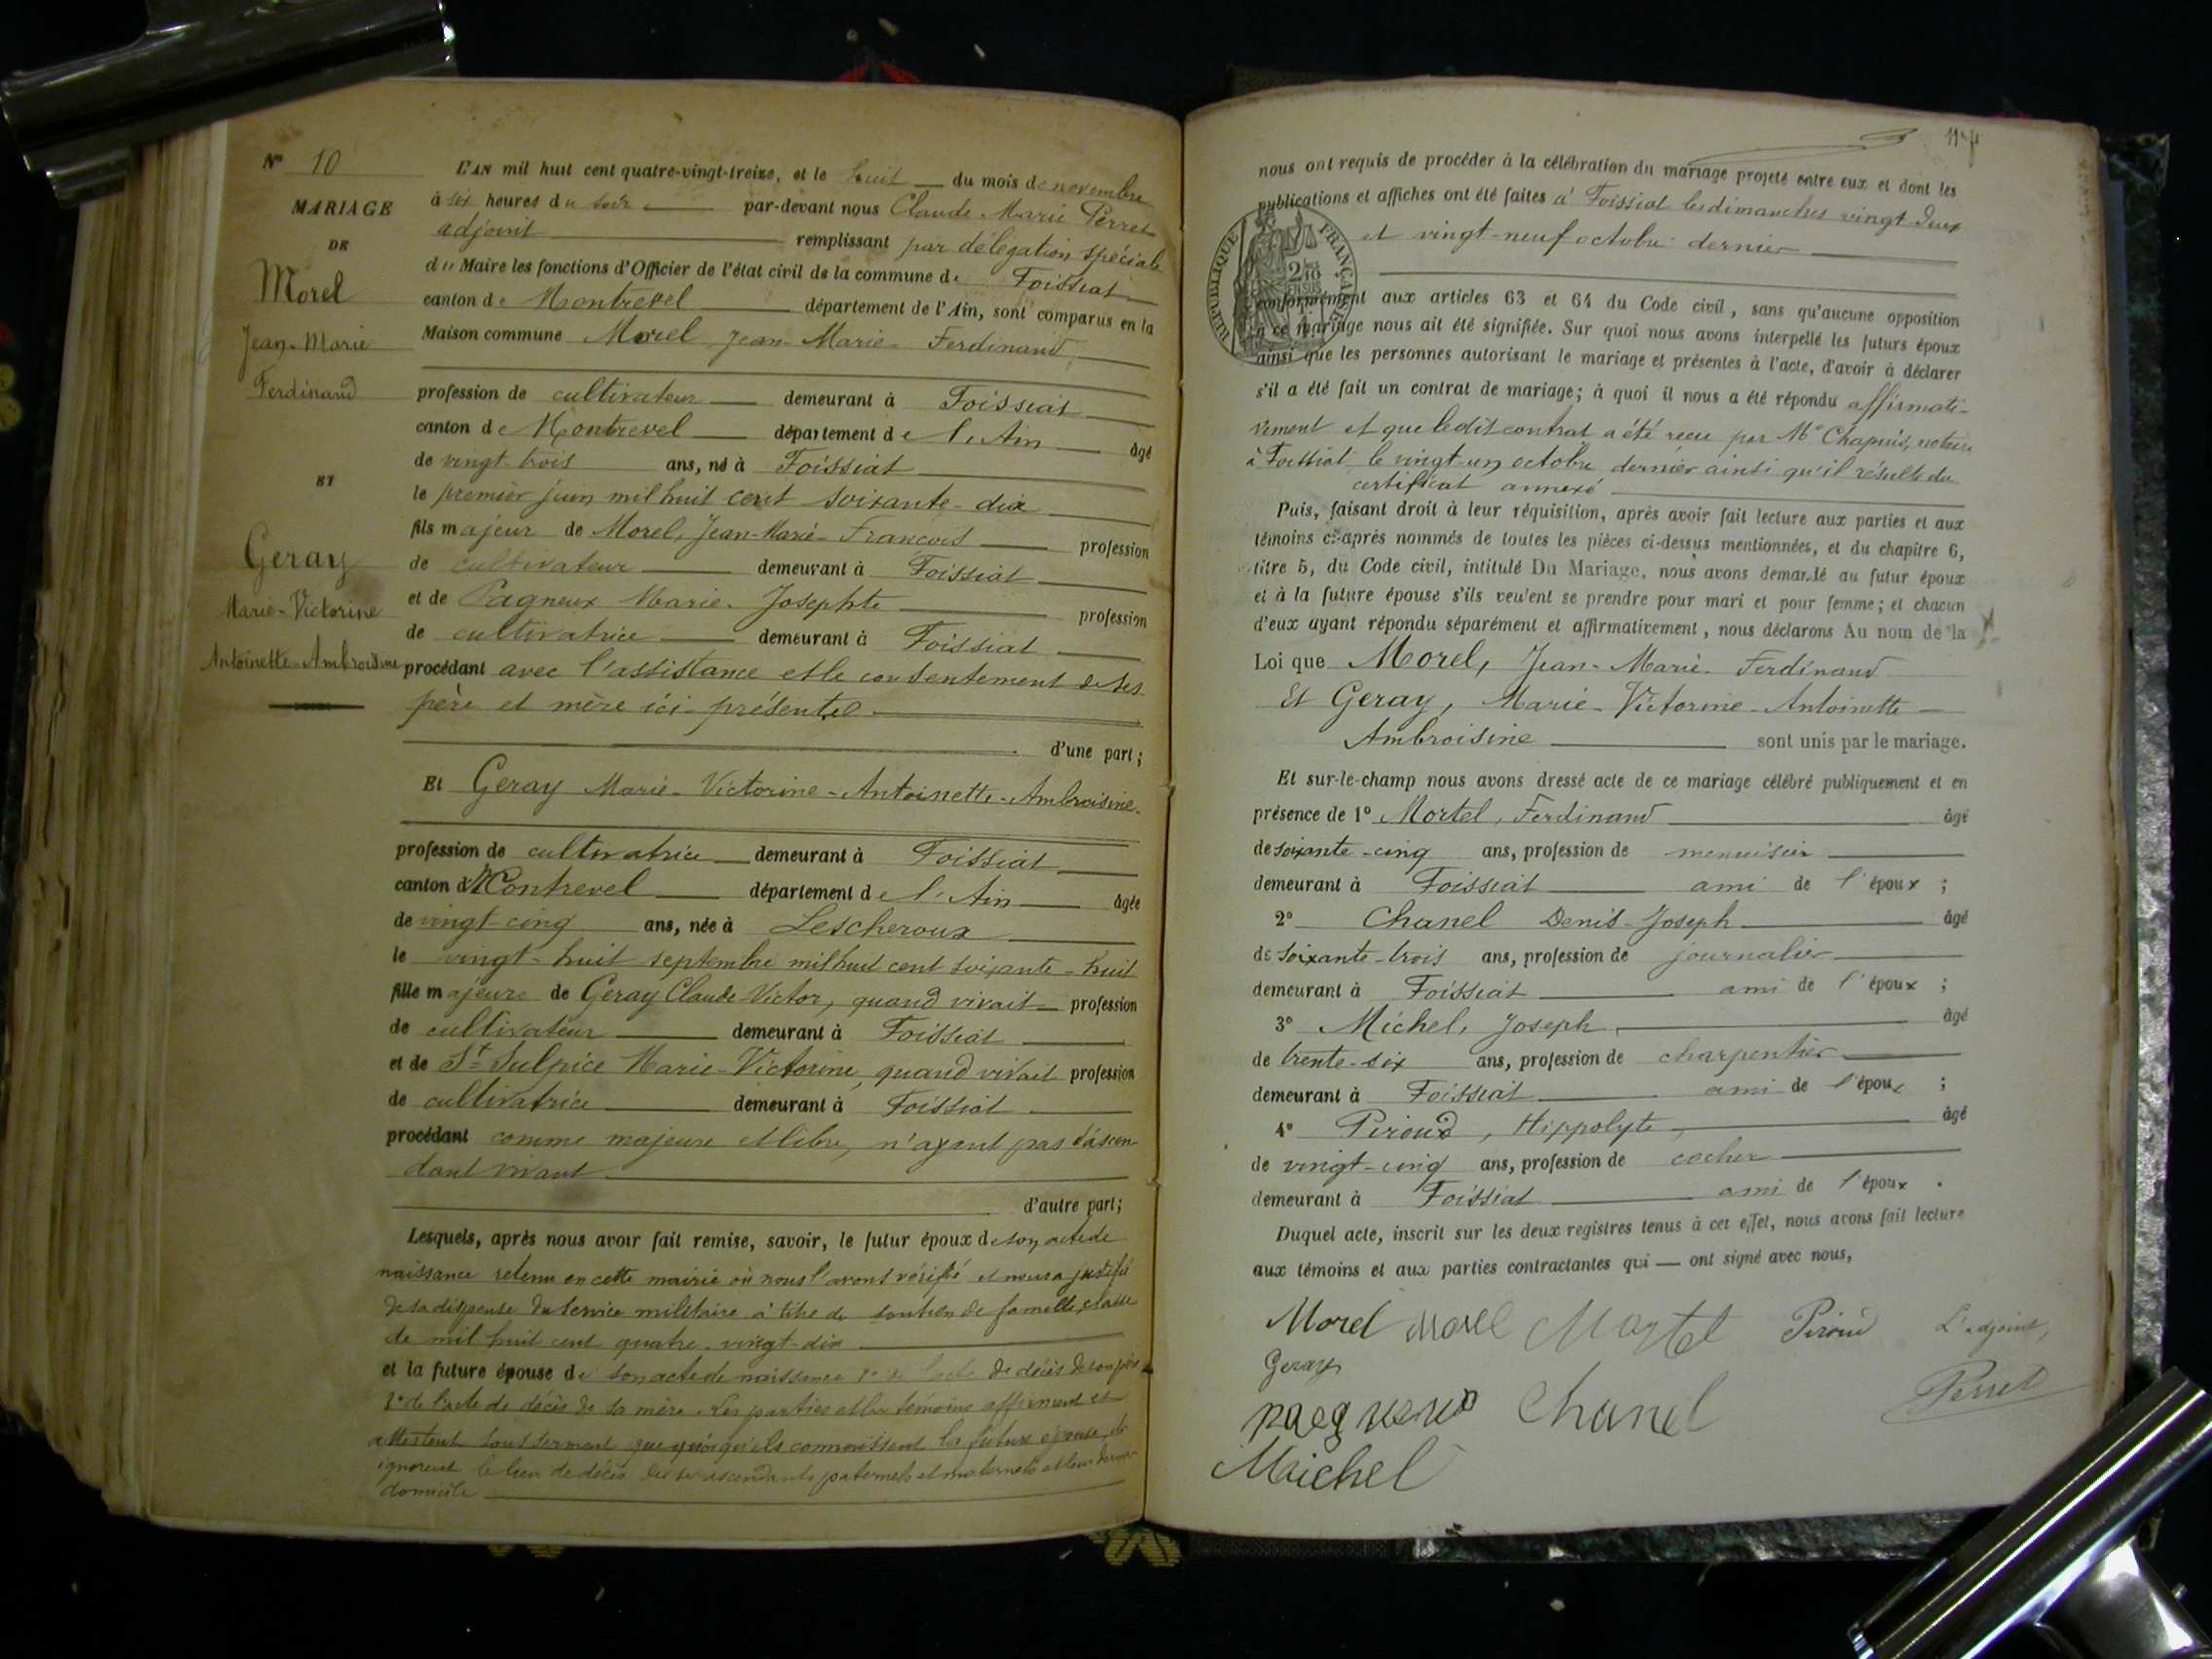 N° 10
MARIAGE
DE
Morel
Jean-Marie
Ferdinand
ET
Geray
Marie-Victorine
Antoinette-Ambroisine
L'AN mil huit cent quatre-vingt-treize, et le huit du mois de novembre
à six heures du soir par-devant nous Claude-Marie Perret
adjoint remplissant par délégation spéciale
du Maire les fonctions d'Officier de l'état civil de la commune de Foissiat
canton de Montrevel département de l'Ain, sont comparus en la
Maison commune Morel Jean-Marie-Ferdinand
profession de cultivateur demeurant à Foissiat
canton de Montrevel département de l'Ain âgé
de vingt-trois ans, né à Foissiat
le premier juin mil huit cent soixante-dix
fils majeur de Morel, Jean-Marie-François profession
de cultivateur demeurant à Foissiat
et de Pagneux Marie-Josephte profession
de cultivatrice demeurant à Foissiat
procédant avec l'assistance et le consentement de ses
père et mère ici présents
d'une part;
Et Geray Marie-Victorine-Antoinette-Ambroisine
profession de cultivatrice demeurant à Foissiat
canton de Montrevel département de l'Ain âgée
de vingt-cinq ans, née à Lescheroux
le vingt-huit septembre mil huit cent soixante-huit
fille majeure de Geray Claude-Victor, quand vivait profession
de cultivateur demeurant à Foissiat
et de St Sulpice Marie-Victorine, quand vivait profession
de cultivatrice demeurant à Foissiat
procédant comme majeure et libre, n'ayant pas d'ascen-
dant vivant
d'autre part;
Lesquels, après nous avoir fait remise, savoir, le futur époux de son acte de
naissance retenu en cette mairie où nous l'avons vérifié et nous a justifié
de sa dispense du service militaire à titre de soutien de famille, classe
de mil huit cent quatre-vingt-dix
et la future épouse de son acte de naissance 1° de l'acte de décès de son père
2° de l'acte de décès de sa mère. Les parties et les témoins affirment et
attestent sous serment que quoiqu'ils connaissent la future épouse, ils
ignorent le lieu de décès de ses ascendants paternels et maternels et leur dernier
domicile
nous ont requis de procéder à la célébration du mariage projeté entre eux et dont les
publications et affiches ont été faites à Foissiat les dimanches vingt-deux
et vingt-neuf octobre dernier
RÉPUBLIQUE FRANÇAISE
conformément aux articles 63 et 64 du Code civil, sans qu'aucune opposition
à ce mariage nous ait été signifiée. Sur quoi nous avons interpellé les futurs époux
ainsi que les personnes autorisant le mariage et présentes à l'acte, d'avoir à déclarer
s'il a été fait un contrat de mariage; à quoi il nous a été répondu affirmati-
vement et que ledit contrat a été reçu par Me Chapuis, notaire
à Foissiat le vingt-un octobre dernier ainsi qu'il résulte du
certificat annexé
Puis, faisant droit à leur réquisition, après avoir fait lecture aux parties et aux
témoins ci-après nommés de toutes les pièces ci-dessus mentionnées, et du chapitre 6,
titre 5, du Code civil, intitulé Du Mariage, nous avons demandé au futur époux
et à la future épouse s'ils veulent se prendre pour mari et pour femme; et chacun
d'eux ayant répondu séparément et affirmativement, nous déclarons Au nom de la
Loi que Morel, Jean-Marie-Ferdinand
Et Geray, Marie-Victorine-Antoinette-
Ambroisine sont unis par le mariage.
Et sur-le-champ nous avons dressé acte de ce mariage célébré publiquement et en
présence de 1° Mortel, Ferdinand âgé
de soixante-cinq ans, profession de menuisier
demeurant à Foissiat ami de l'époux;
2° Chanel Denis-Joseph âgé
de soixante-trois ans, profession de journalier
demeurant à Foissiat ami de l'époux;
3° Michel, Joseph âgé
de trente-six ans, profession de charpentier
demeurant à Foissiat ami de l'époux;
4° Piroud, Hippolyte âgé
de vingt-cinq ans, profession de cocher
demeurant à Foissiat ami de l'époux.
Duquel acte, inscrit sur les deux registres tenus à cet effet, nous avons fait lecture
aux témoins et aux parties contractantes qui — ont signé avec nous,
Morel Morel Mortel Piroud L'adjoint,
Geray
pagneux Chanel Perret
Michel